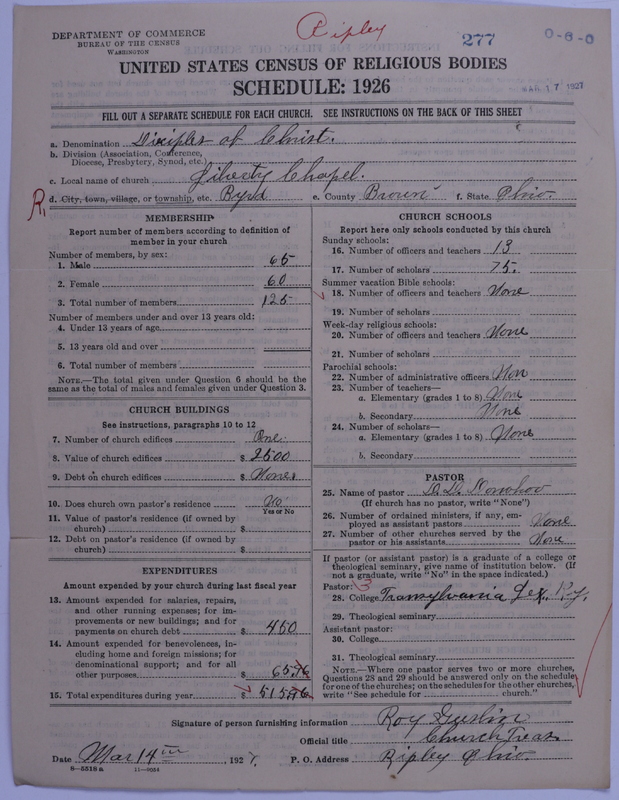 DEPARTMENT OF COMMERCE
BUREAU OF THE CENSUS
WASHINGTON
Ripley
277
0-8-0
MAR 17 1927
UNITED STATES CENSUS OF RELIGIOUS BODIES
SCHEDULE: 1926
FILL OUT A SEPARATE SCHEDULE FOR EACH CHURCH. SEE INSTRUCTIONS ON THE BACK OF THIS SHEET
a. Denomination Disciples of Christ.
b. Division (Association, Conference,
Diocese, Presbytery, Synod, etc.)
c. Local name of church Liberty Chapel.
R. d. City, town, village, or township, etc. Byrd e. County Brown f. State Ohio.
MEMBERSHIP
Report number of members according to definition of
member in your church
Number of members, by sex:
1. Male 65
2. Female 60
3. Total number of members 125
Number of members under and over 13 years old:
4. Under 13 years of age
5. 13 years old and over
6. Total number of members
NOTE.—The total given under Question 6 should be the
same as the total of males and females given under Question 3.
CHURCH BUILDINGS
See instructions, paragraphs 10 to 12
7. Number of church edifices One.
8. Value of church edifices $ 2500
9. Debt on church edifices $ None
10. Does church own pastor's residence No
Yes or No
11. Value of pastor's residence (if owned by
church) $
12. Debt on pastor's residence (if owned by
church) $
EXPENDITURES
Amount expended by your church during last fiscal year
13. Amount expended for salaries, repairs,
and other running expenses; for im-
provements or new buildings; and for
payments on church debt $ 450
14. Amount expended for benevolences, in-
cluding home and foreign missions; for
denominational support; and for all
other purposes $ 65.76
15. Total expenditures during year $ 515.76
CHURCH SCHOOLS
Report here only schools conducted by this church
Sunday schools:
16. Number of officers and teachers 13
17. Number of scholars 75.
Summer vacation Bible schools:
18. Number of officers and teachers None
19. Number of scholars
Week-day religious schools:
20. Number of officers and teachers None
21. Number of scholars
Parochial schools:
22. Number of administrative officers Non
23. Number of teachers—
a. Elementary (grades 1 to 8) None
b. Secondary None
24. Number of scholars—
a. Elementary (grades 1 to 8) None
b. Secondary
PASTOR
25. Name of pastor
(If church has no pastor, write "None")
26. Number of ordained ministers, if any, em-
ployed as assistant pastors None
27. Number of other churches served by the
pastor or his assistants None
If pastor (or assistant pastor) is a graduate of a college or
theological seminary, give name of institution below. (If
not a graduate, write "No" in the space indicated.)
Pastor: 3
28. College Transylvania Lex. Ky.
29. Theological seminary
Assistant pastor:
30. College
31. Theological seminary
NOTE.—Where one pastor serves two or more churches,
Questions 28 and 29 should be answered only on the schedule
for one of the churches; on the schedules for the other churches,
write "See schedule for church."
Signature of person furnishing information Roy
Official title Church Treas.
Date Mar 14th, 1927 P. O. Address Ripley Ohio.
8-5518a 11-9054